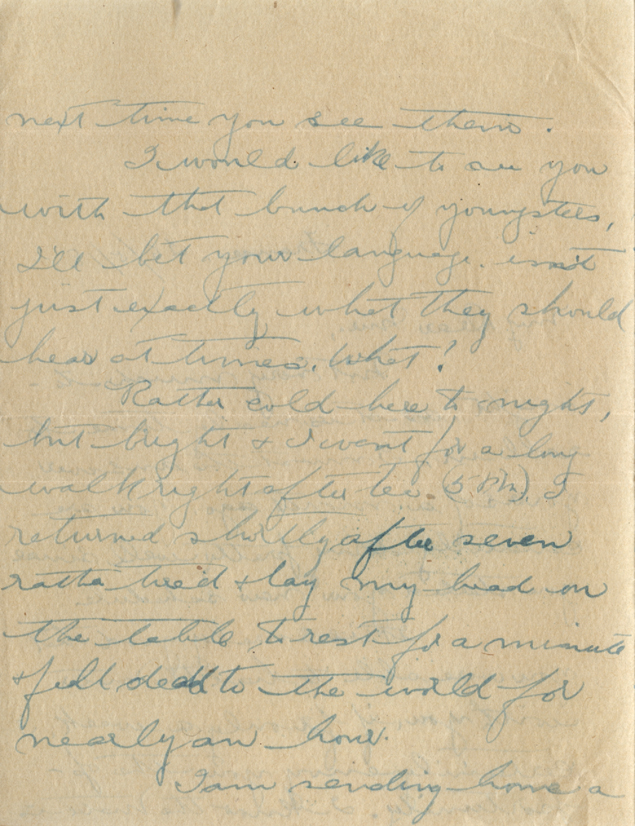 next time you see them.
I would like to see you
with that bunch of youngsters,
I'll bet your language isn't
just exactly what they should
hear at times. What!
Rather cold here to-night,
but bright & I went for a long
walk right after tea (5 PM). I
returned shortly after seven
rather tired & lay my head on
the table to rest for a minute
& fell dead to the world for
nearly an hour.
I am sending home a